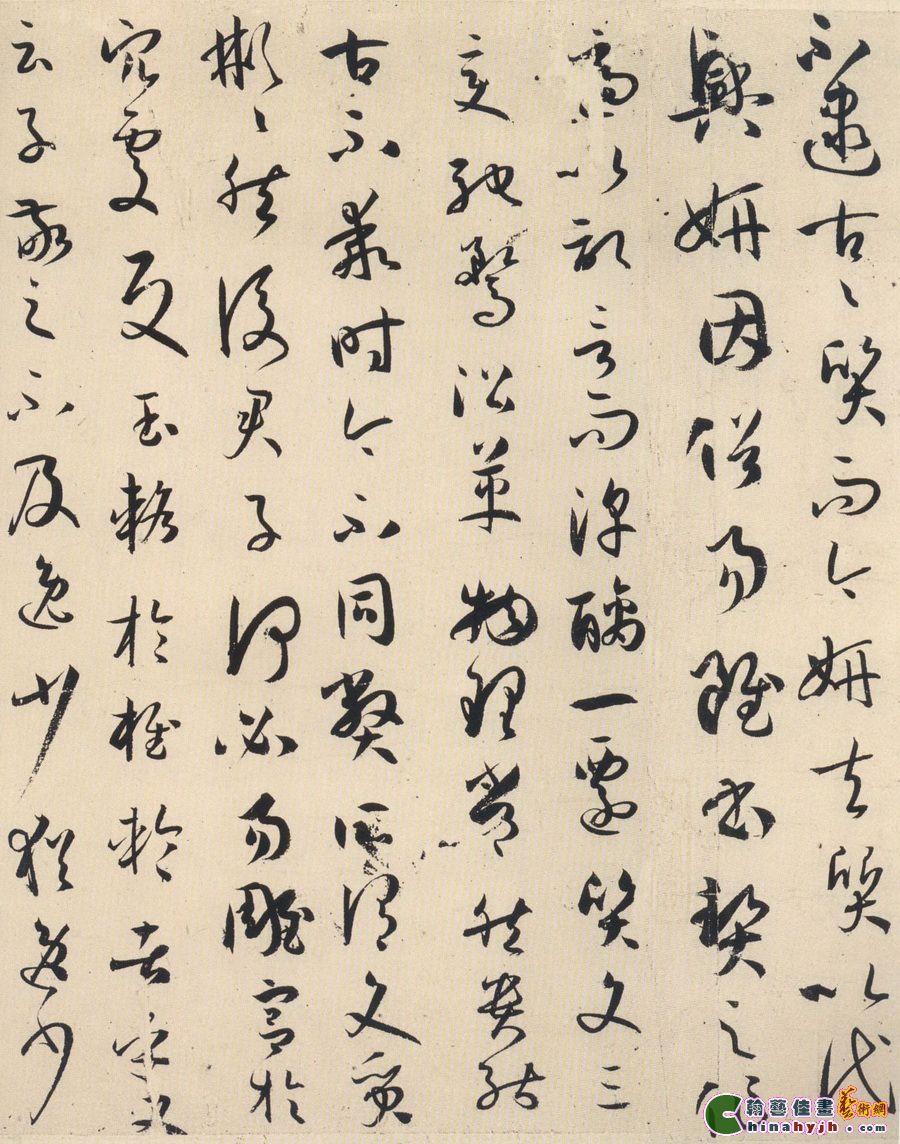 不逮古古質而今妍夫質以代
興妍因俗易雖書契之作
適以記言而淳醨一遷質文三
變馳騖沿革物理常然貴能
古不乖時今不同弊所謂文質
彬彬然後君子何必易雕宮於
穴處反玉輅於椎輪者乎又
云子敬之不及逸少猶逸少
翰藝佳畫藝術網
Chinahyjh.com